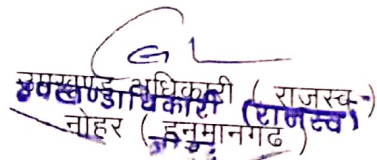 उपखण्ड अधिकारी ( राजस्व )
उपखण्डाधिकारी (राजस्व)
नोहर ( हनुमानगढ )